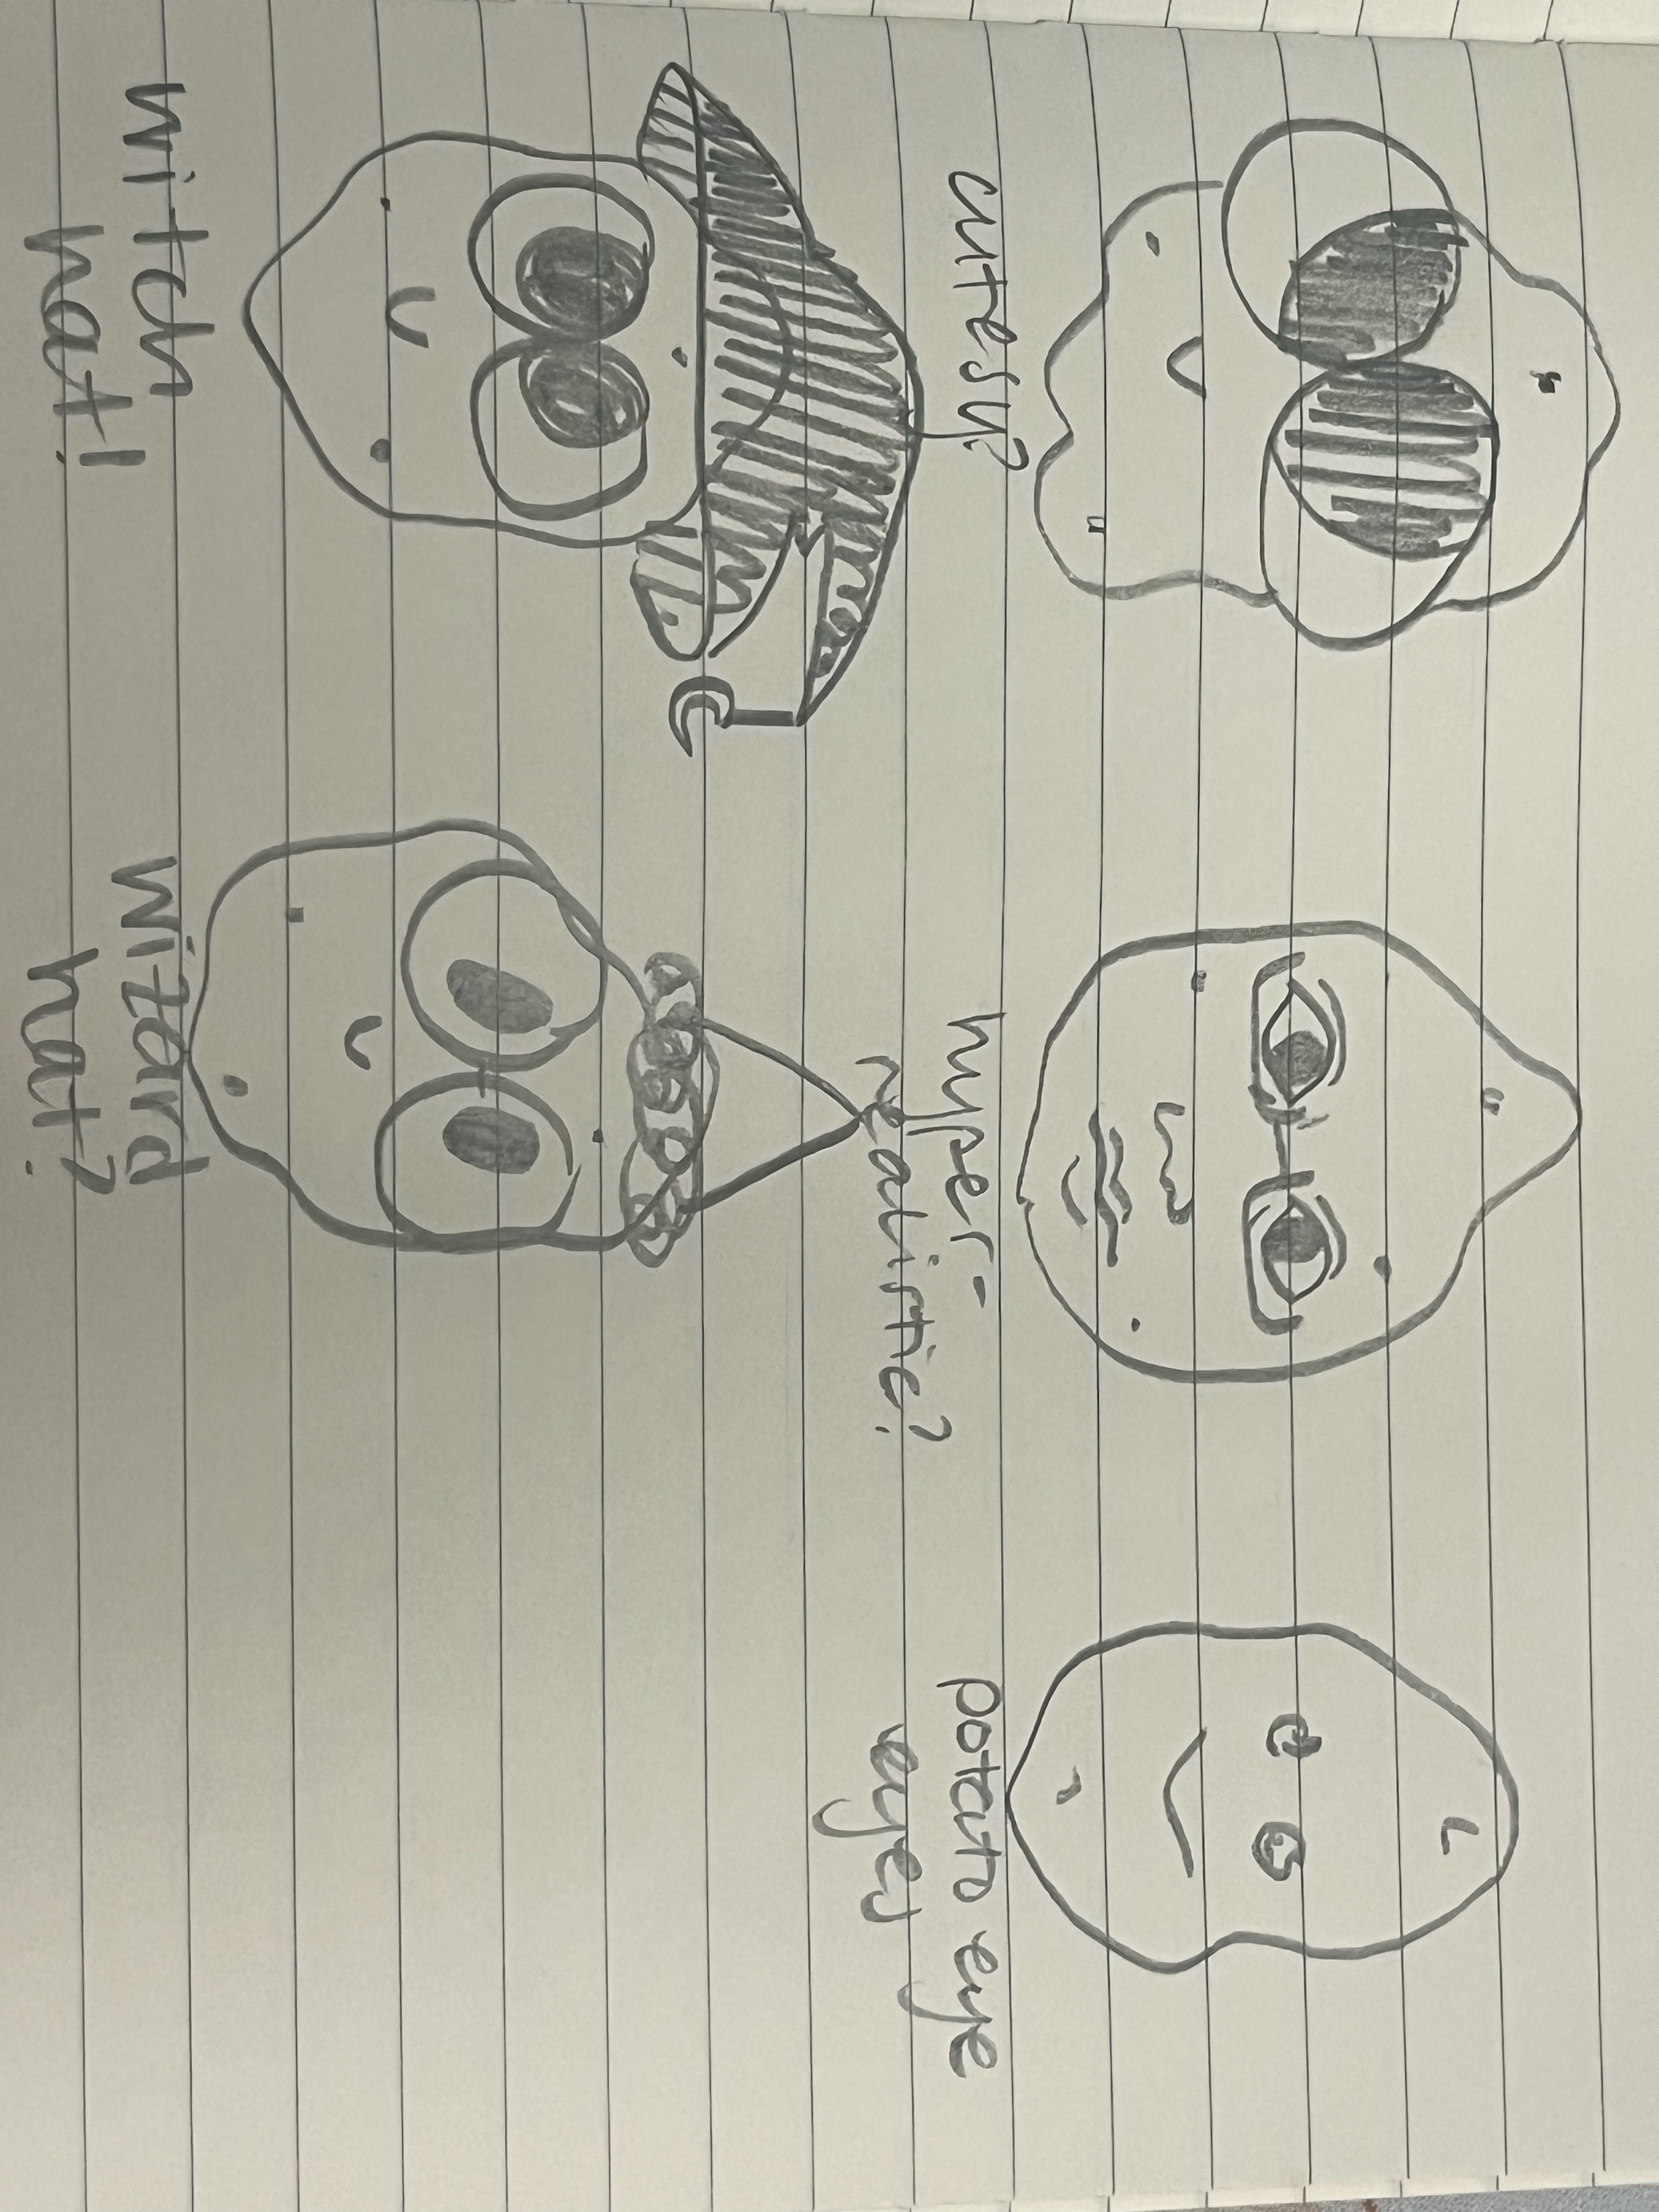 cutesy?
hyper-
realistic?
potato eye
eyes
witch
hat!
wizard
hat?